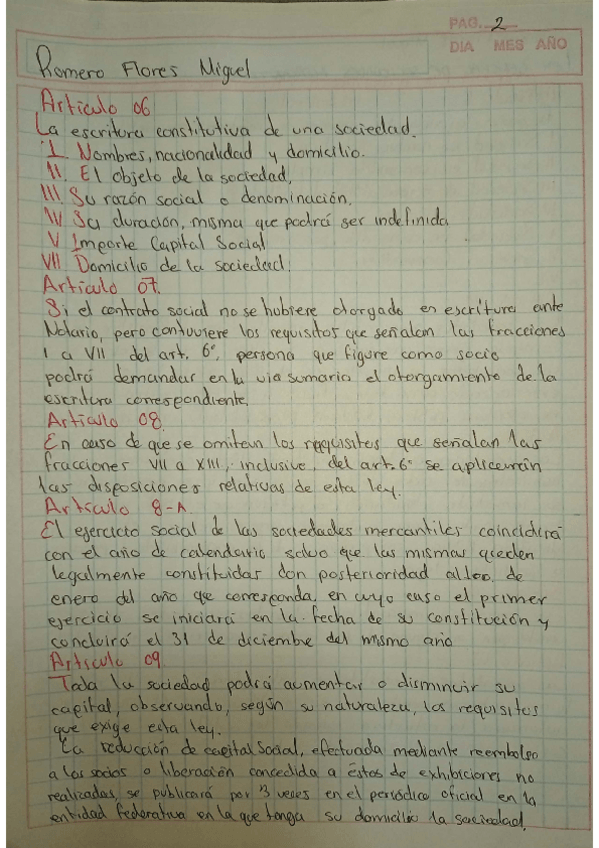 PAG. 2
DIA MES AÑO
Romero Flores Miguel
Artículo 06
La escritura constitutiva de una sociedad.
I. Nombres, nacionalidad y domicilio.
II. El objeto de la sociedad,
III. Su razón social o denominación.
IV Su duración, misma que podrá ser indefinida
V Importe Capital Social
VII. Domicilio de la sociedad.
Artículo 07.
Si el contrato social no se hubiere otorgado en escritura ante
Notario, pero contuviere los requisitos que señalan las fracciones
I a VII del art. 6°, persona que figure como socio
podrá demandar en la vía sumaria el otorgamiento de la
escritura correspondiente.
Artículo 08.
En caso de que se omitan los requisitos que señalan las
fracciones VII a XIII, inclusive, del art. 6° se aplicarán
las disposiciones relativas de esta ley.
Artículo 8-A
El ejercicio social de las sociedades mercantiles coincidirá
con el año de calendario salvo que las mismas queden
legalmente constituidas con posterioridad al 1ro. de
enero del año que corresponda, en cuyo caso el primer
ejercicio se iniciará en la fecha de su constitución y
concluirá el 31 de diciembre del mismo año
Artículo 09
Toda la sociedad podrá aumentar o disminuir su
capital, observando, según su naturaleza, los requisitos
que exige esta ley.
La reducción de capital Social, efectuada mediante reembolso
a los socios o liberación concedida a éstos de exhibiciones no
realizadas, se publicará por 3 veces en el periódico oficial en la
entidad federativa en la que tenga su domicilio la sociedad.